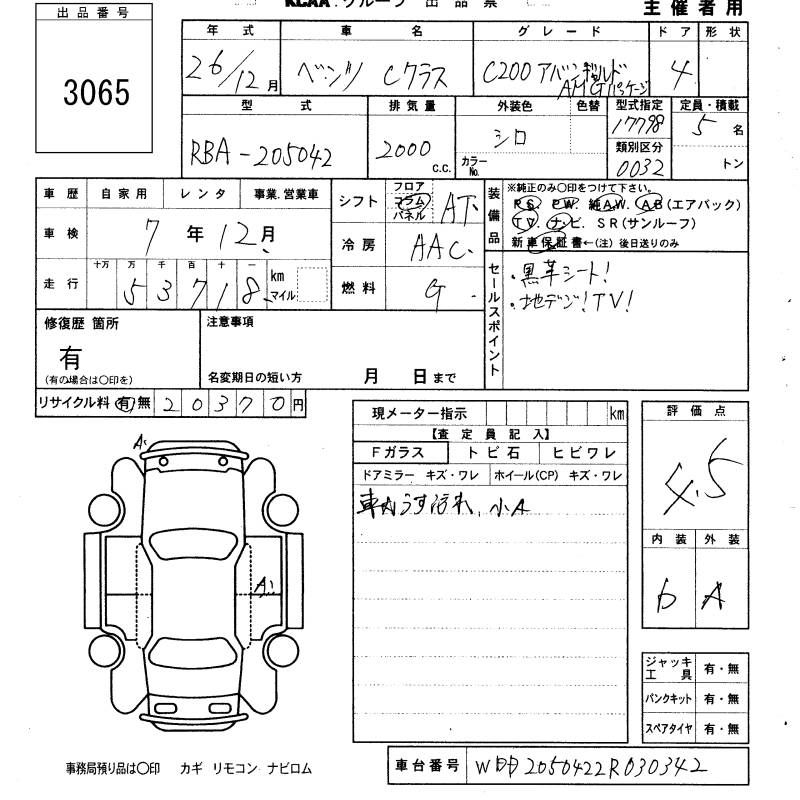 KCAA グループ 出品票
主催者用
出品番号
3065
年式 車名 グレード ドア 形状
26/12月 ベンツ Cクラス C200 アバンギャルド 4
AMGパッケージ
型式 排気量 外装色 色替 型式指定 定員・積載
RBA-205042 2000 c.c. シロ 17798 5名
カラーNo. 類別区分 トン
0032
車歴 自家用 レンタ 事業.営業車
シフト フロア コラム パネル AT
装備品 ※純正のみ〇印をつけて下さい。
PS. PW. 純AW. AB(エアバック)
TV. ナビ. SR(サンルーフ)
新車保証書←(注) 後日送りのみ
車検 7年12月
冷房 AAC
走行 十万 万 千 百 十 一
53718 km マイル
燃料 G
セールスポイント
・黒革シート!
・地デジ!TV!
修復歴 箇所
有
(有の場合は〇印を)
注意事項
名変期日の短い方 月 日まで
リサイクル料 有 無 20370円
現メーター指示 km
【査定員記入】
Fガラス トビ石 ヒビワレ
ドアミラー キズ・ワレ ホイール(CP) キズ・ワレ
車内うす汚れ、小A
評価点
4.5
内装 外装
b A
A1
A1
ジャッキ工具 有・無
パンクキット 有・無
スペアタイヤ 有・無
事務局預り品は〇印 カギ リモコン ナビロム
車台番号 WDD2050422R030342